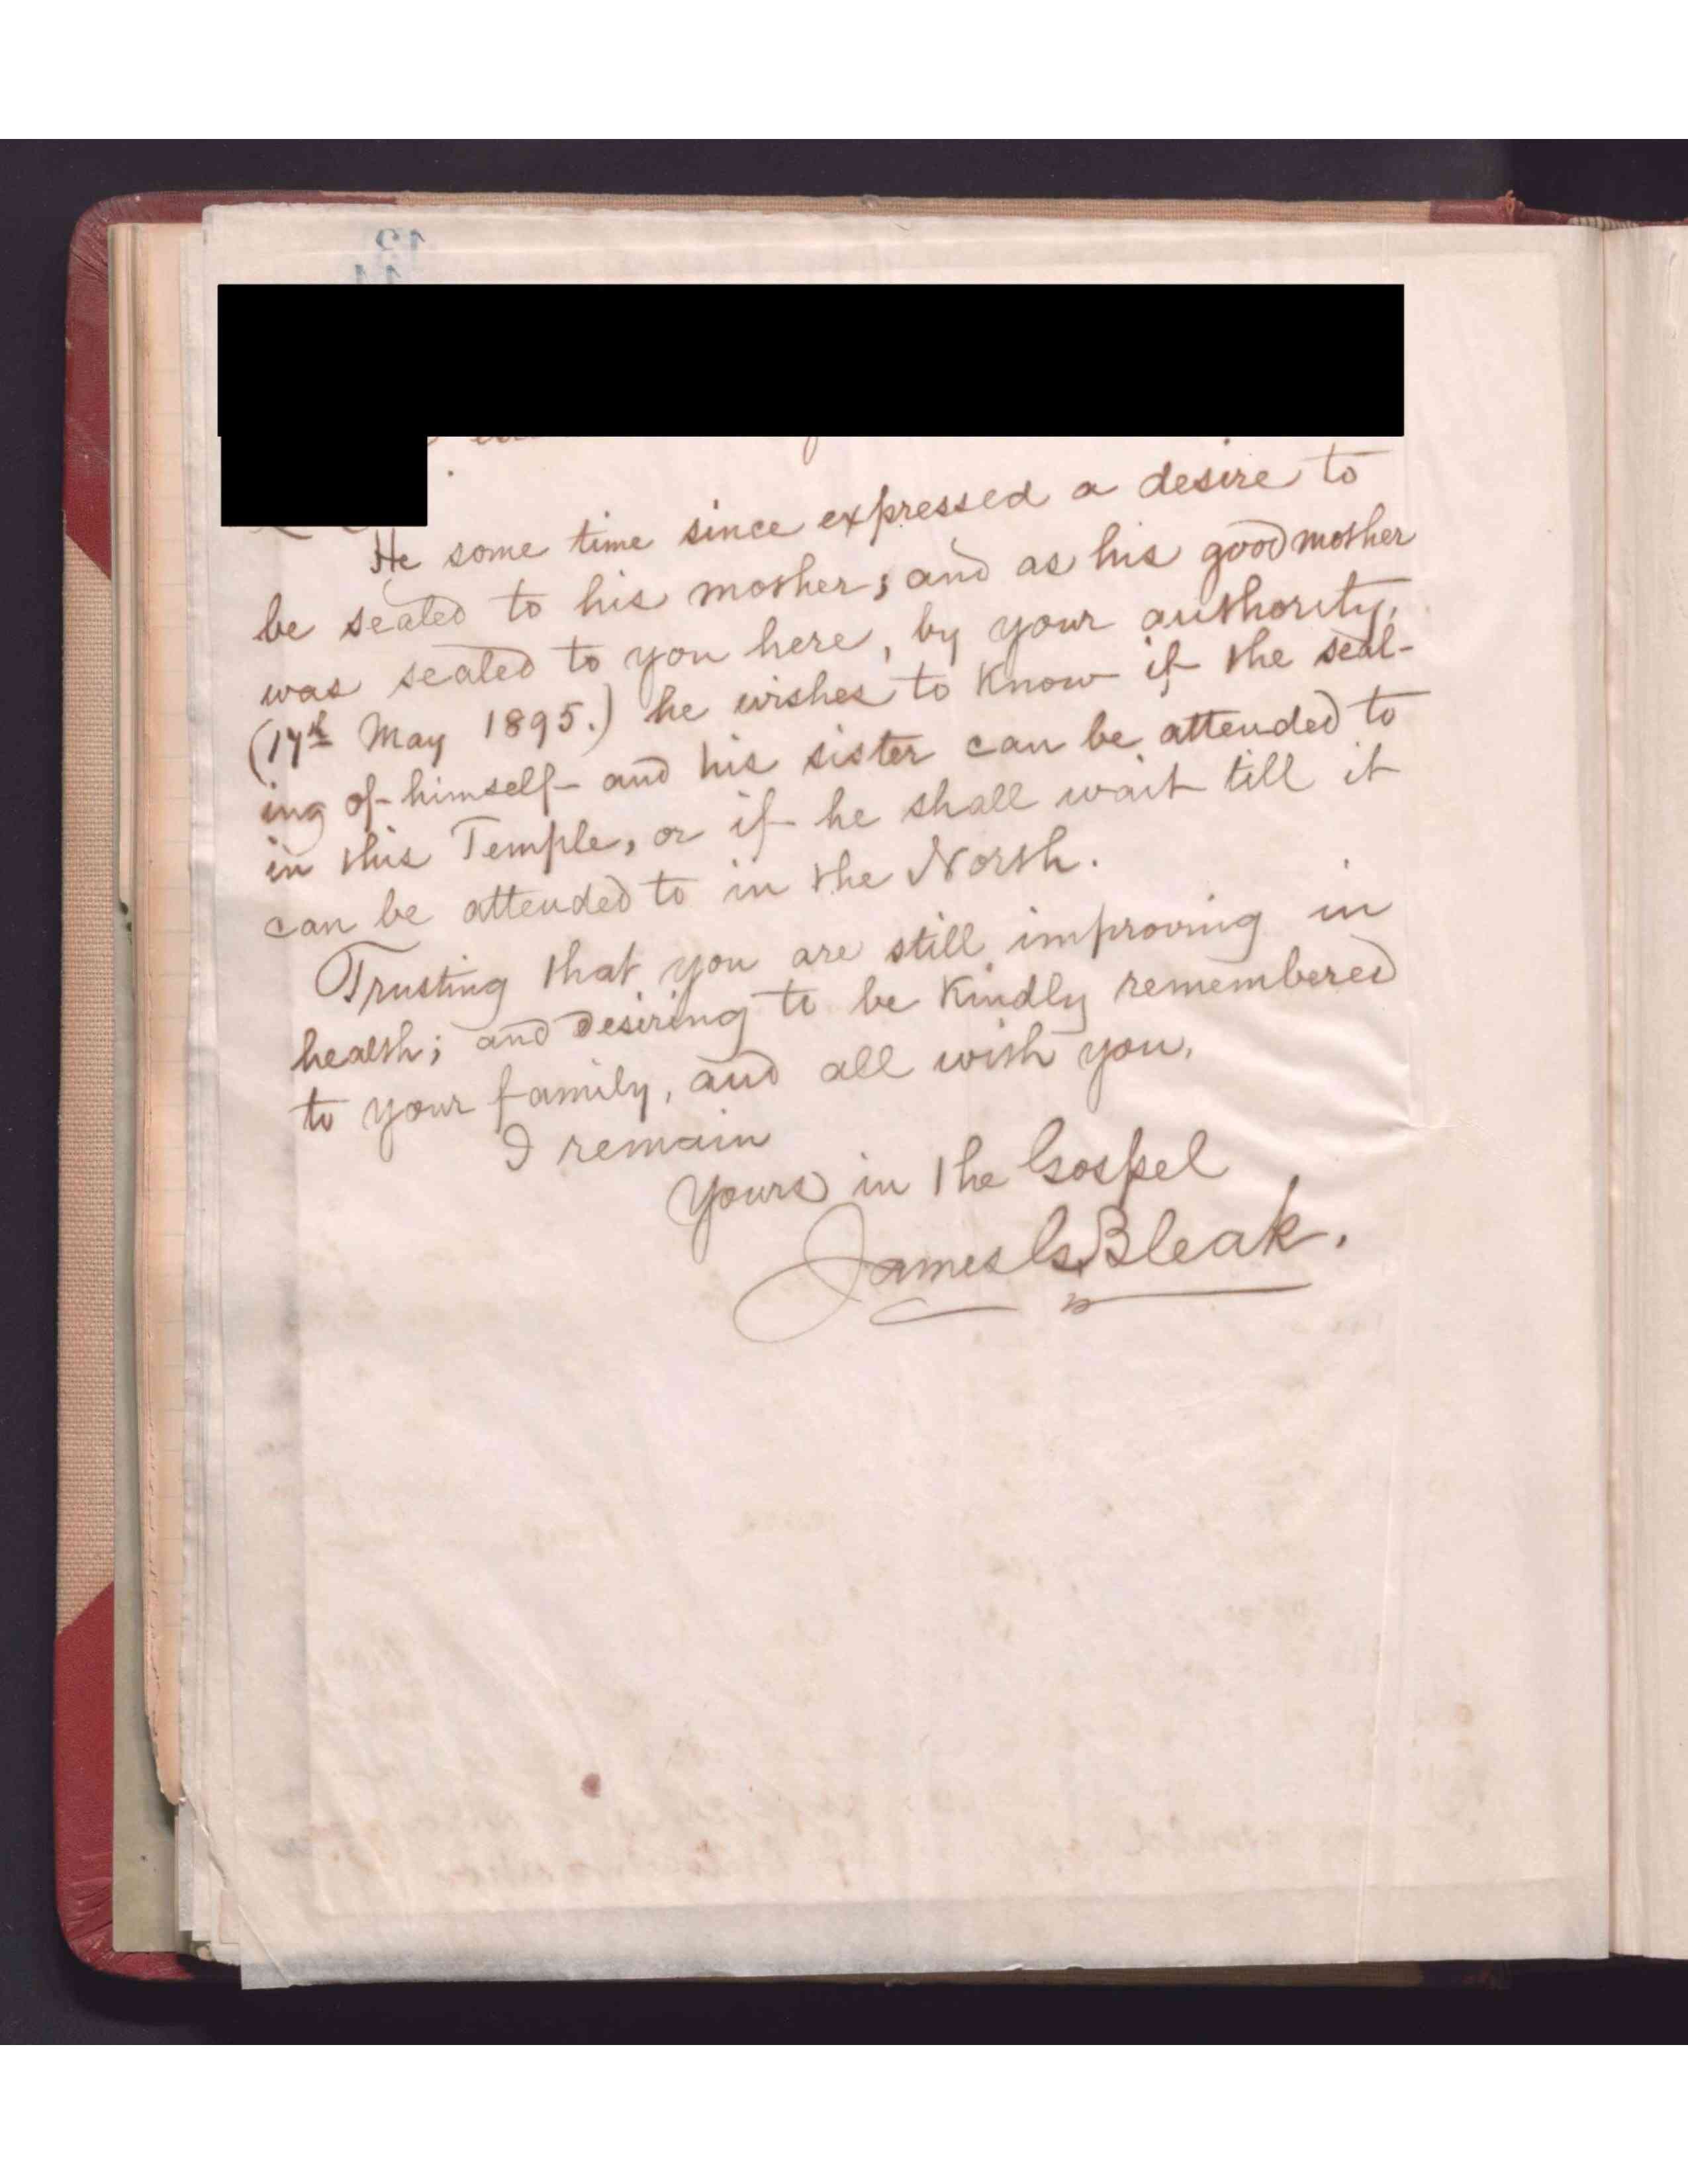 He some time since expressed a desire to
be sealed to his mother; and as his good mother
was sealed to you here, by your authority,
(17th May 1895.) he wishes to know if the seal-
ing of himself and his sister can be attended to
in this Temple, or if he shall wait till it
can be attended to in the North.
Trusting that you are still improving in
health; and desiring to be kindly remembered
to your family, and all with you,
I remain
Yours in the Gospel
James G. Bleak.